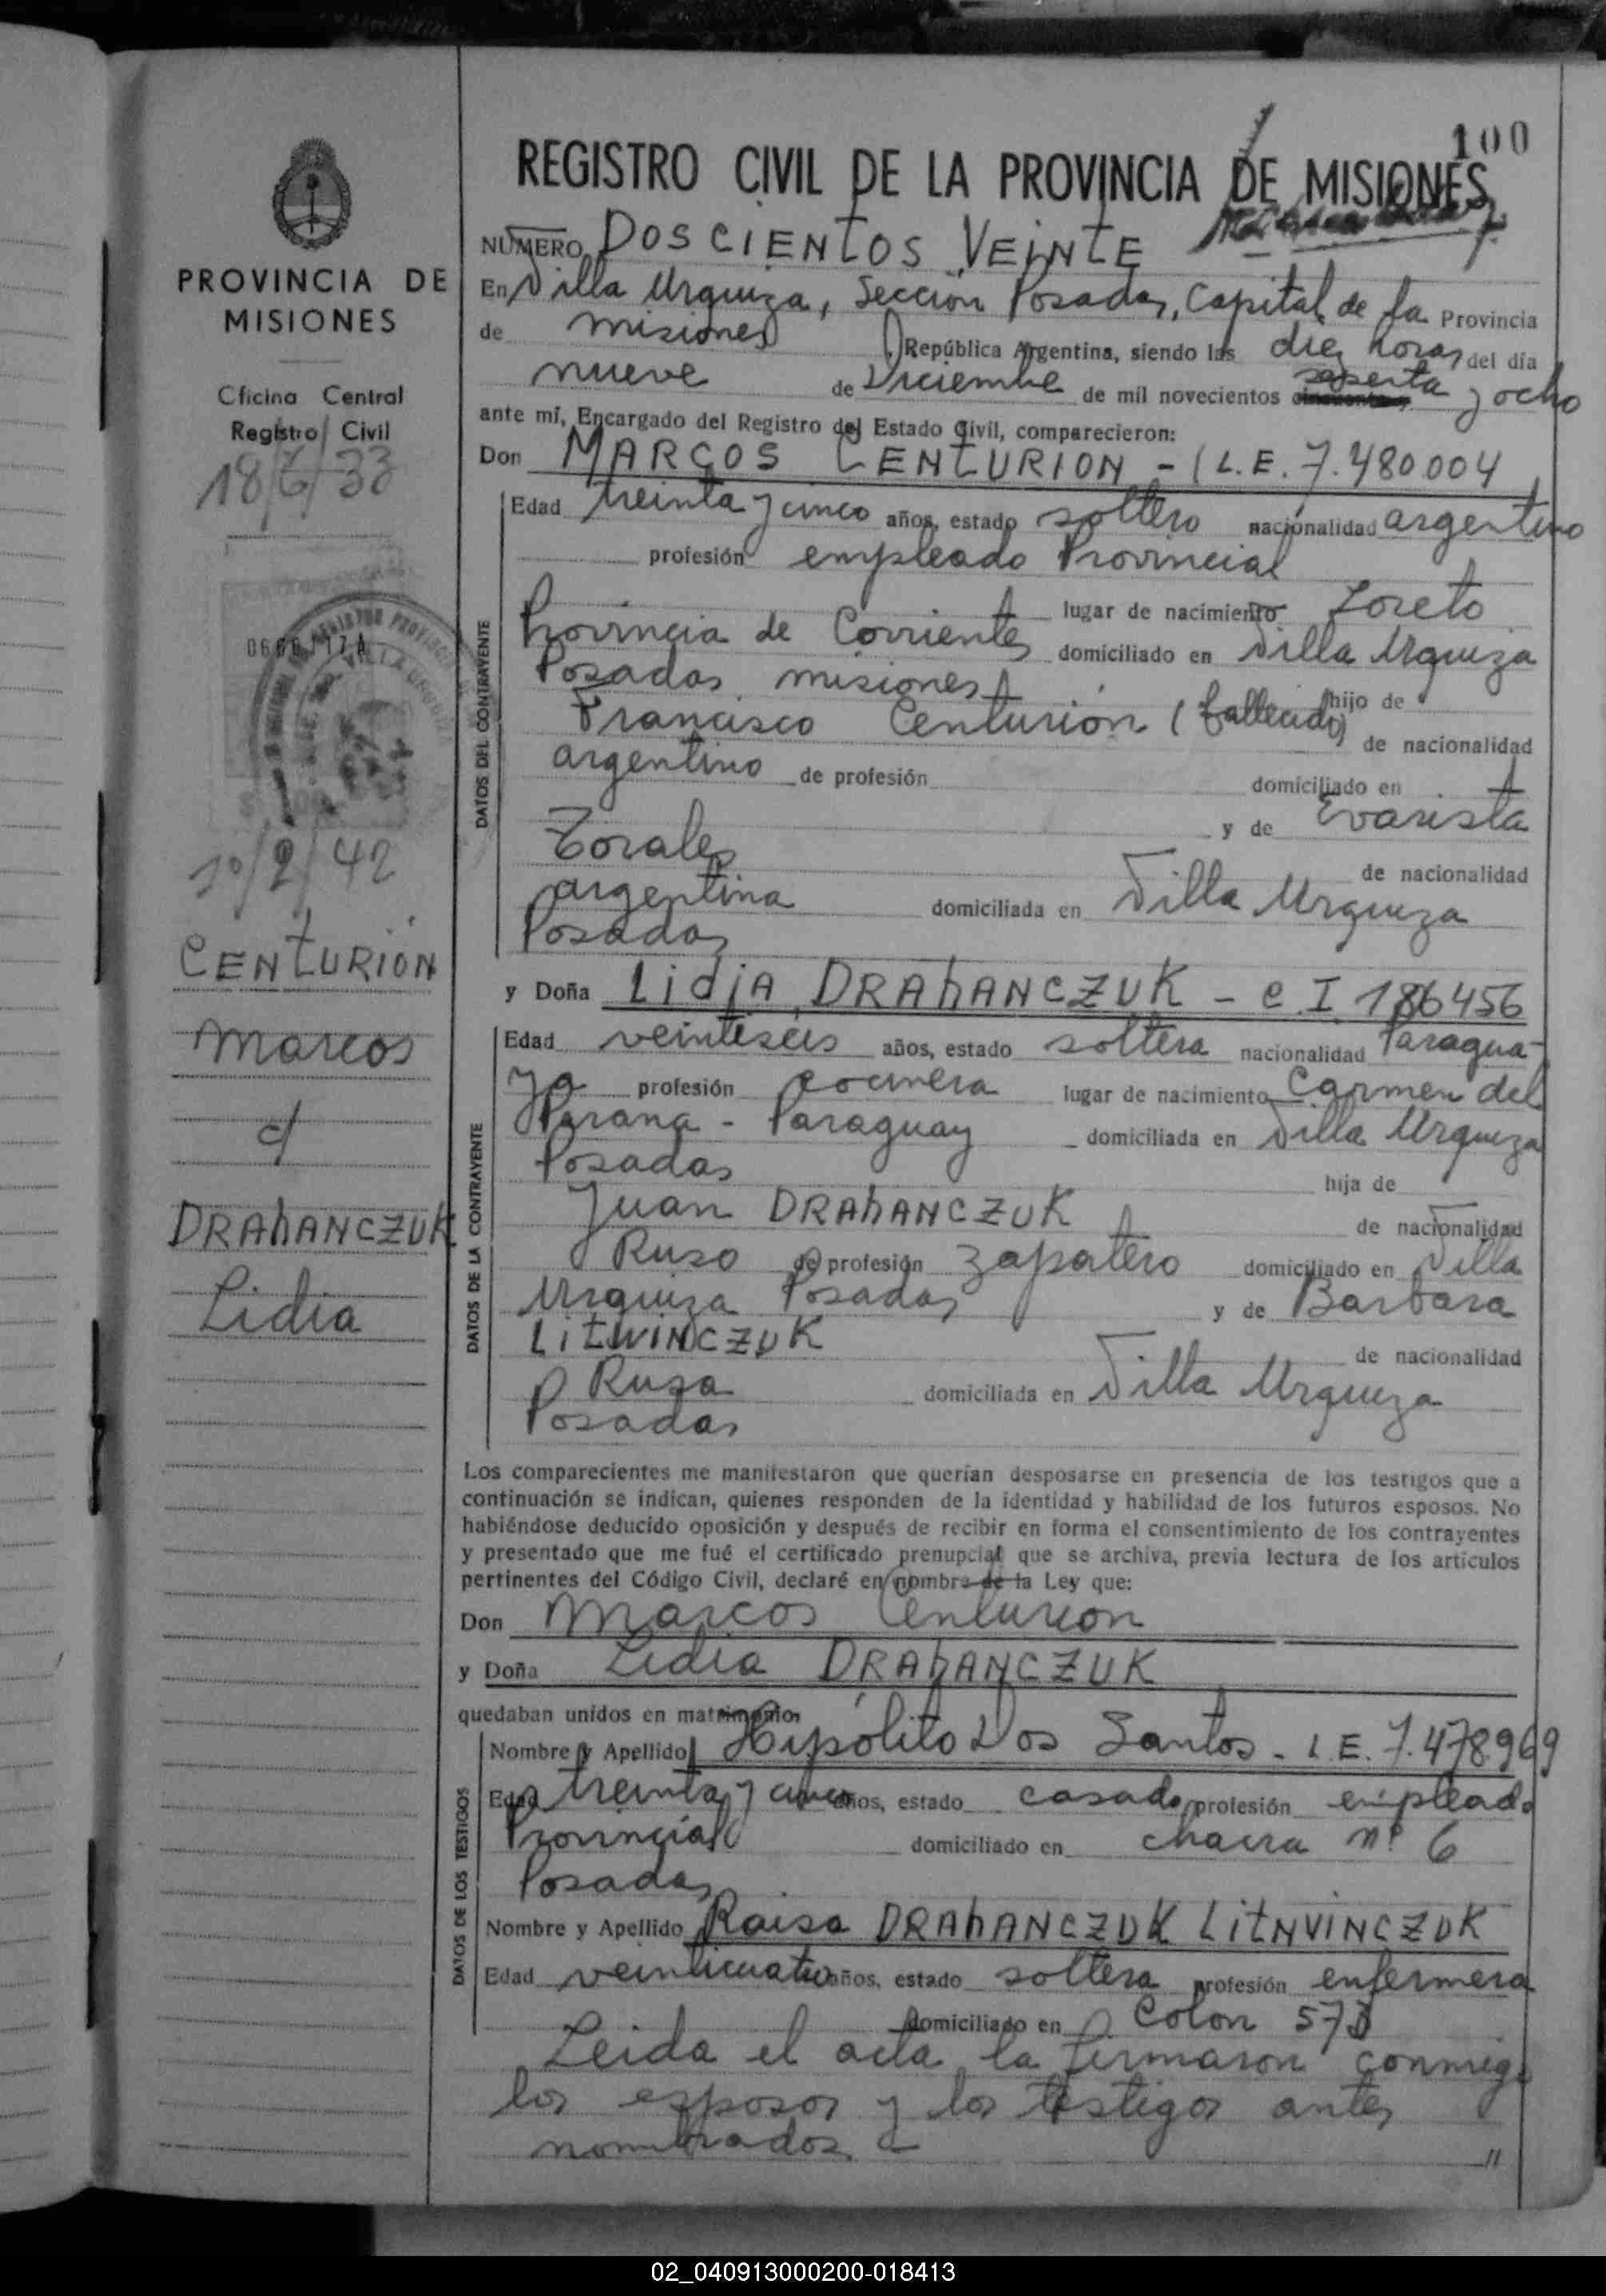 100
REGISTRO CIVIL DE LA PROVINCIA DE MISIONES
NÚMERO DOSCIENTOS VEINTE
En Villa Urquiza, Sección Posadas, Capital de la Provincia
de misiones República Argentina, siendo las diez horas del día
nueve de Diciembre de mil novecientos cincuenta sesenta y ocho
ante mí, Encargado del Registro del Estado Civil, comparecieron:
Don MARCOS CENTURION - (L.E. 7.480.004
DATOS DEL CONTRAYENTE
Edad treinta y cinco años, estado soltero nacionalidad argentino
profesión empleado Provincial
lugar de nacimiento Loreto
Provincia de Corrientes domiciliado en Villa Urquiza
Posadas misiones hijo de
Francisco Centurión (fallecido) de nacionalidad
argentino de profesión domiciliado en
y de Evarista
Torales de nacionalidad
argentina domiciliada en Villa Urquiza
Posadas
y Doña LidiA DRAhANCZUK - C I 186456
DATOS DE LA CONTRAYENTE
Edad veintiseis años, estado soltera nacionalidad Paragua-
ya profesión cocinera lugar de nacimiento Carmen del
Parana - Paraguay domiciliada en Villa Urquiza
Posadas hija de
Juan DRAhANCZUK de nacionalidad
Ruso de profesión zapatero domiciliado en Villa
Urquiza Posadas y de Barbara
LITWINCZUK de nacionalidad
Rusa domiciliada en Villa Urquiza
Posadas
Los comparecientes me manifestaron que querían desposarse en presencia de los testigos que a
continuación se indican, quienes responden de la identidad y habilidad de los futuros esposos. No
habiéndose deducido oposición y después de recibir en forma el consentimiento de los contrayentes
y presentado que me fué el certificado prenupcial que se archiva, previa lectura de los artículos
pertinentes del Código Civil, declaré en nombre de la Ley que:
Don Marcos Centurion
y Doña Lidia DRAhANCZUK
quedaban unidos en matrimonio.
DATOS DE LOS TESTIGOS
Nombre y Apellido Hipólito Dos Santos - L.E. 7.478.969
Edad treinta y cinco años, estado casado profesión empleado
Provincial domiciliado en chacra nº 6
Posadas
Nombre y Apellido Raisa DRAhANCZUK LITNVINCZUK
Edad veinticuatro años, estado soltera profesión enfermera
domiciliado en Colon
Leida el acta la firmaron conmigo
los esposos y los testigos antes
nombrados.
"
PROVINCIA DE
MISIONES
Oficina Central
Registro Civil
18/6/33
10/2/42
CENTURIÓN
Marcos
c/
DRAhANCZUK
Lidia
02_040913000200-018413